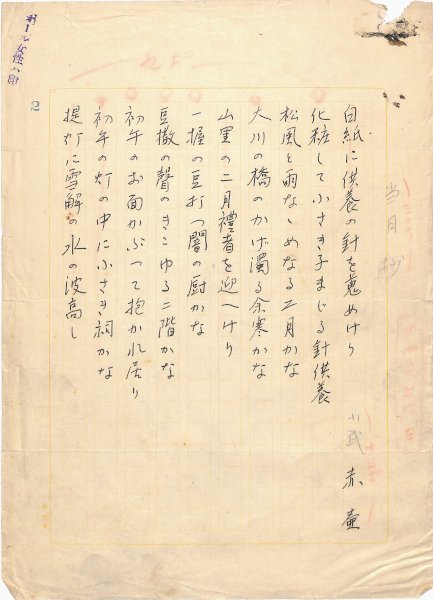 オール女性八月
2
当月抄
小武 赤壷
白紙に供養の針を蒐めけり
化粧して小さき子まじる針供養
松風と雨なゝめなる二月かな
大川の橋のかげ濁る余寒かな
山里の二月禮者を迎へけり
一握の豆打つ闇の厨かな
豆撒の聲のきこゆる二階かな
初午のお面かぶつて抱かれ居り
初午の灯の中に小さき祠かな
提灯に雪解の水の波高し